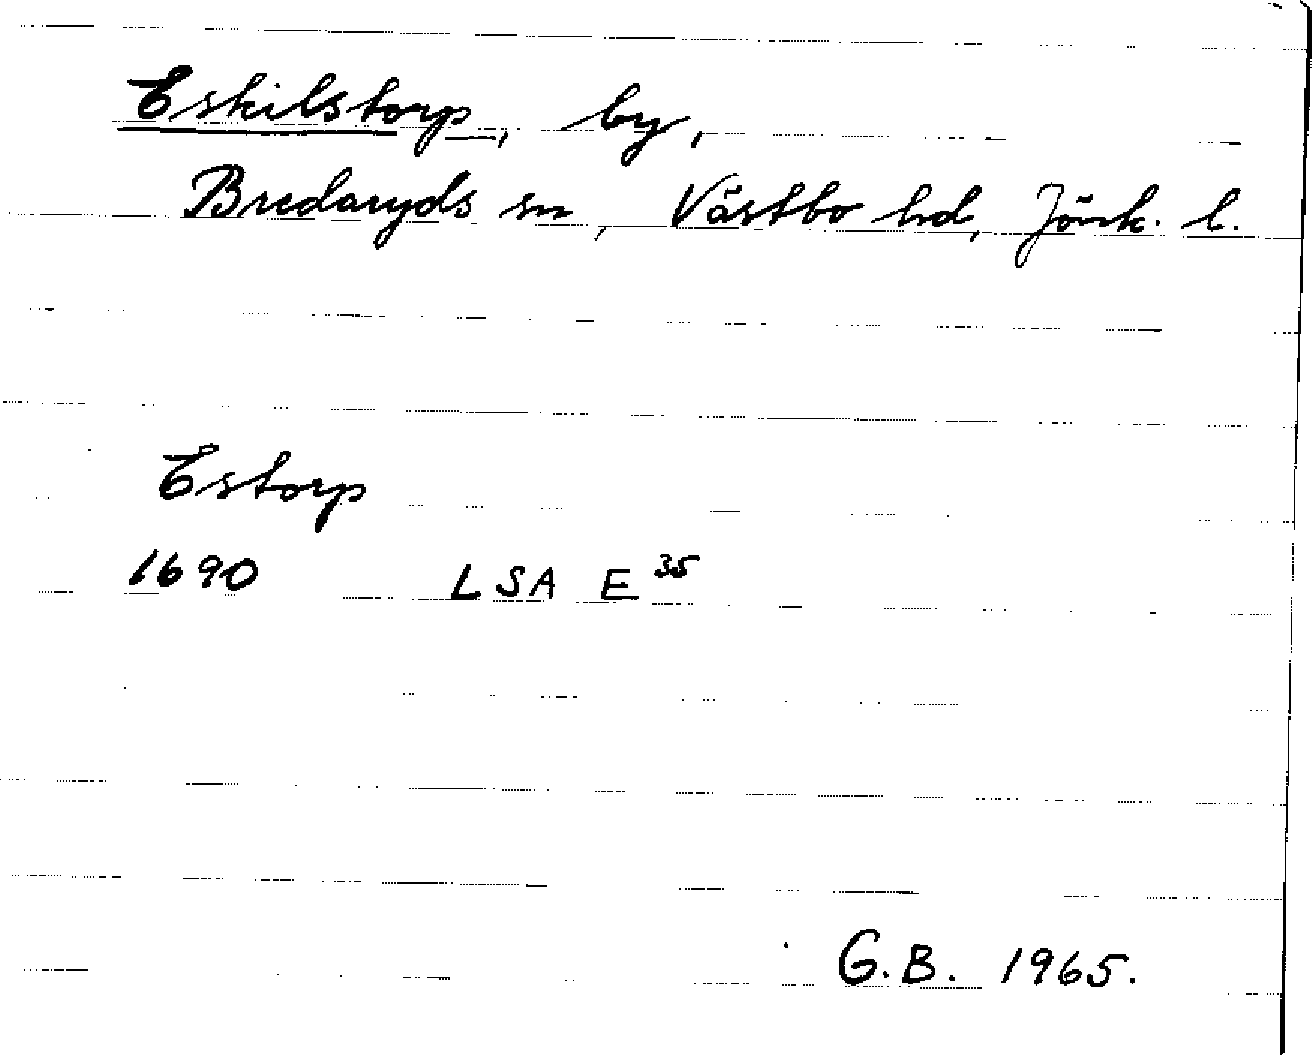 Eskilstorp, by,
Bredaryds sn, Västbo hd, Jönk. l.
Estorp
1690 LSA E 35
G.B. 1965.